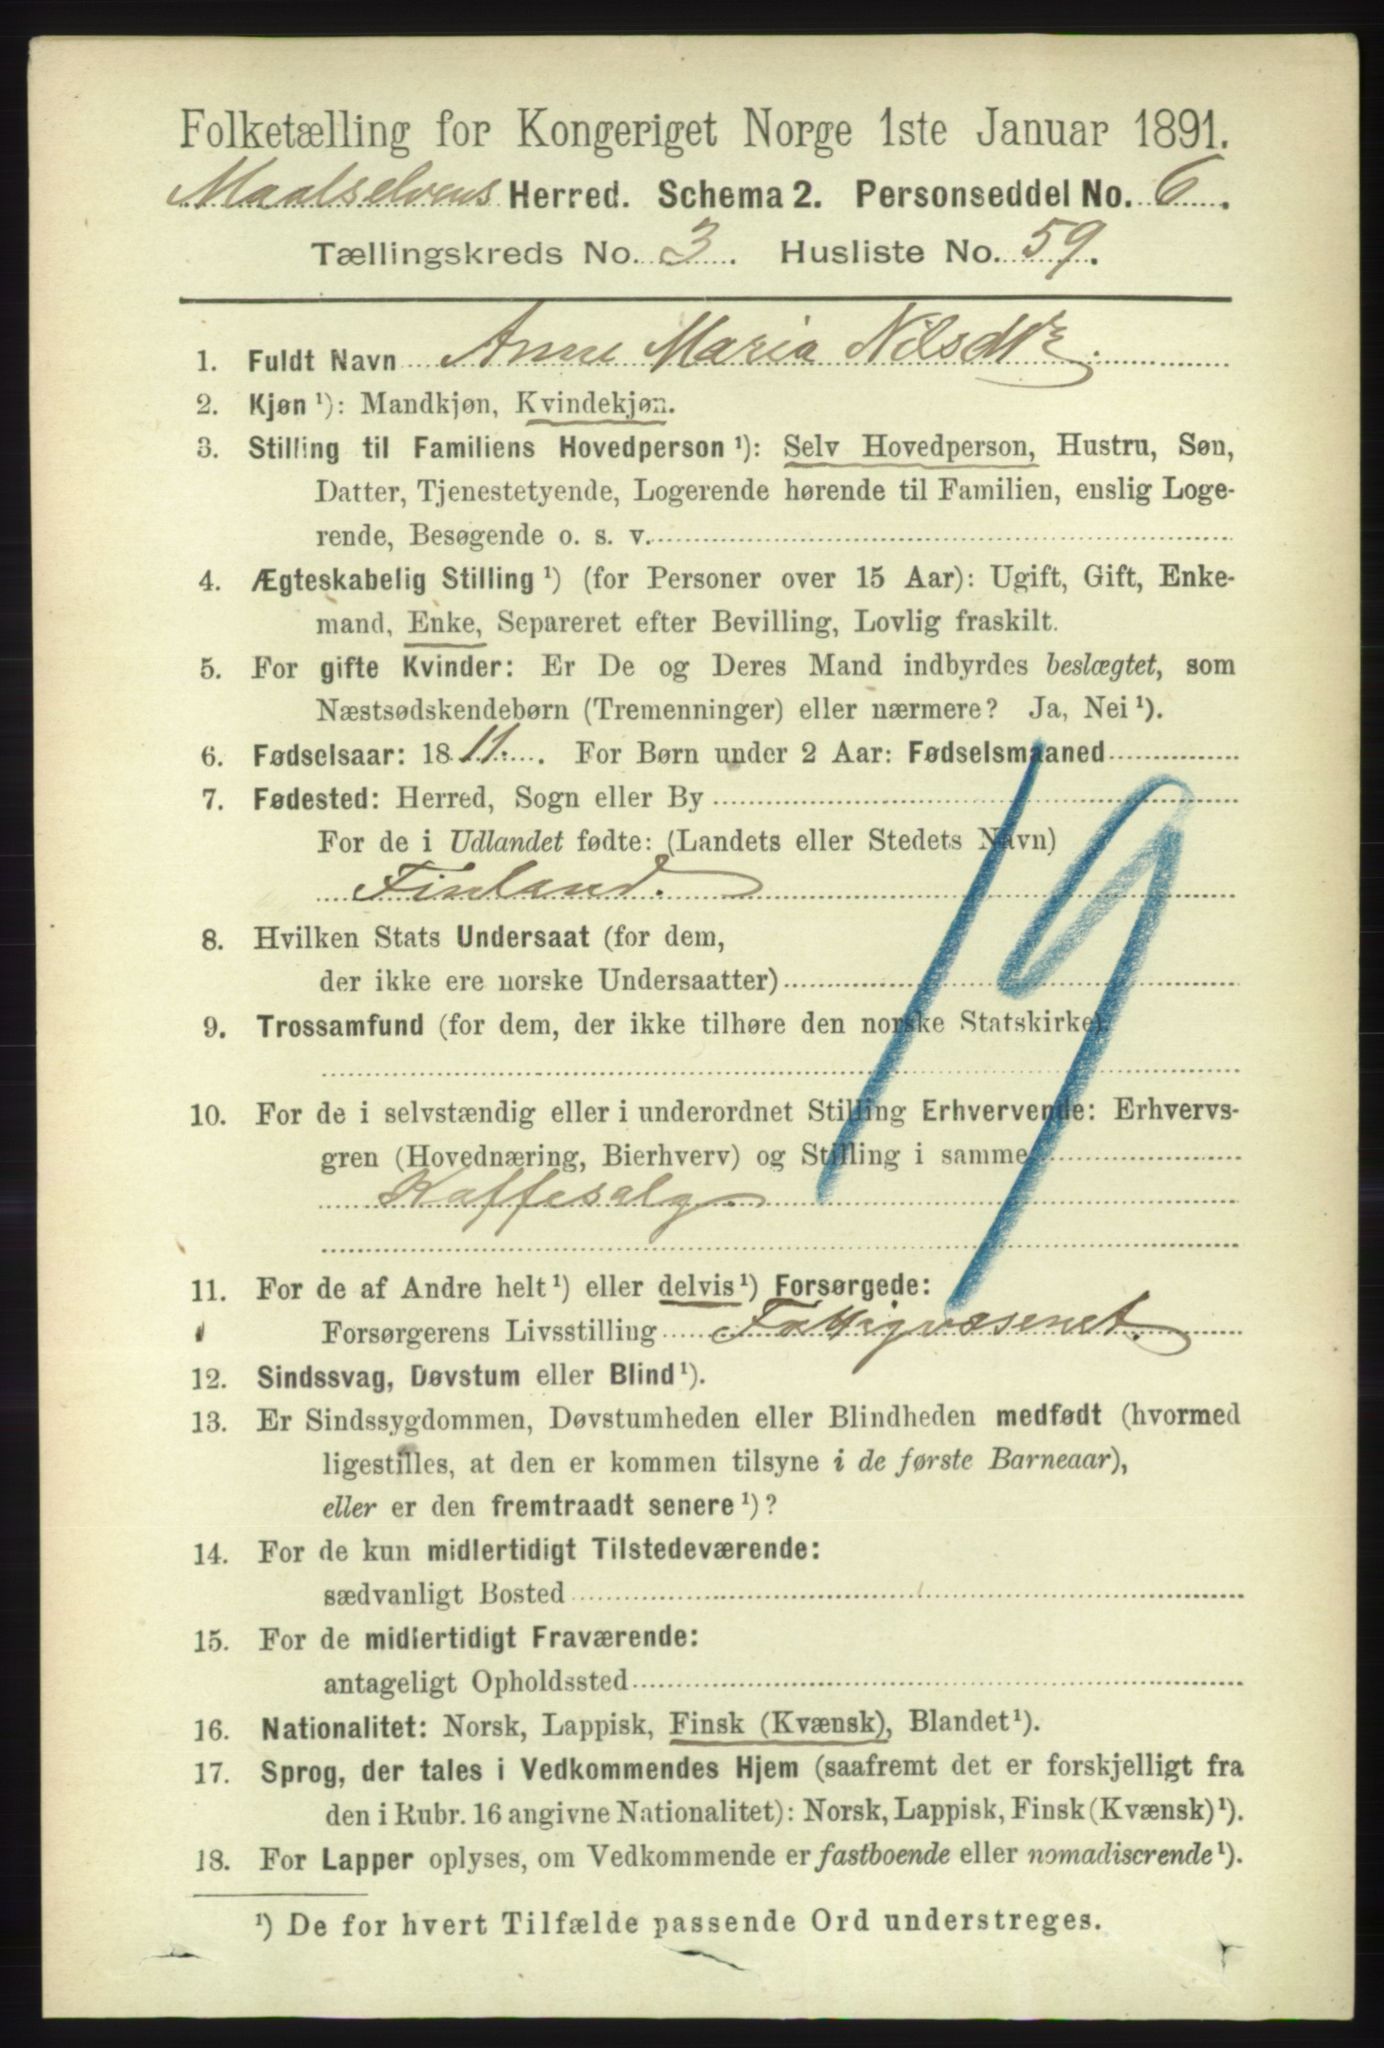 Folketælling for Kongeriget Norge 1ste Januar 1891.
Maalselvens Herred. Schema 2. Personseddel No. 6.
Tællingskreds No. 3. Husliste No. 59.
1. Fuldt Navn Anne Maria Nilsdtr.
2. Kjøn ¹): Mandkjøn, Kvindekjøn.
3. Stilling til Familiens Hovedperson ¹): Selv Hovedperson, Hustru, Søn,
Datter, Tjenestetyende, Logerende hørende til Familien, enslig Loge-
rende, Besøgende o. s. v.
4. Ægteskabelig Stilling ¹) (for Personer over 15 Aar): Ugift, Gift, Enke-
mand, Enke, Separeret efter Bevilling, Lovlig fraskilt.
5. For gifte Kvinder: Er De og Deres Mand indbyrdes beslægtet, som
Næstsødskendebørn (Tremenninger) eller nærmere? Ja, Nei ¹).
6. Fødselsaar: 1811. For Børn under 2 Aar: Fødselsmaaned
7. Fødested: Herred, Sogn eller By
For de i Udlandet fødte: (Landets eller Stedets Navn)
Finland.
8. Hvilken Stats Undersaat (for dem,
der ikke ere norske Undersaatter)
9. Trossamfund (for dem, der ikke tilhøre den norske Statskirke)
10. For de i selvstændig eller i underordnet Stilling Erhvervende: Erhvervs-
gren (Hovednæring, Bierhverv) og Stilling i samme
Kaffesalg.
11. For de af Andre helt ¹) eller delvis ¹) Forsørgede:
Forsørgerens Livsstilling Fattigvæsenet.
12. Sindssvag, Døvstum eller Blind ¹).
13. Er Sindssygdommen, Døvstumheden eller Blindheden medfødt (hvormed
ligestilles, at den er kommen tilsyne i de første Barneaar),
eller er den fremtraadt senere ¹)?
14. For de kun midlertidigt Tilstedeværende:
sædvanligt Bosted
15. For de midlertidigt Fraværende:
antageligt Opholdssted
16. Nationalitet: Norsk, Lappisk, Finsk (Kvænsk), Blandet ¹).
17. Sprog, der tales i Vedkommendes Hjem (saafremt det er forskjelligt fra
den i Rubr. 16 angivne Nationalitet): Norsk, Lappisk, Finsk (Kvænsk) ¹).
18. For Lapper oplyses, om Vedkommende er fastboende eller nomadiserende ¹).
¹) De for hvert Tilfælde passende Ord understreges.
19